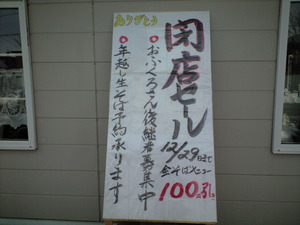 ありがとう
閉店セール
12/29日まで
全そばメニュー
100円引き
●おふくろさん後継者募集中
●年越し生そば予約承ります